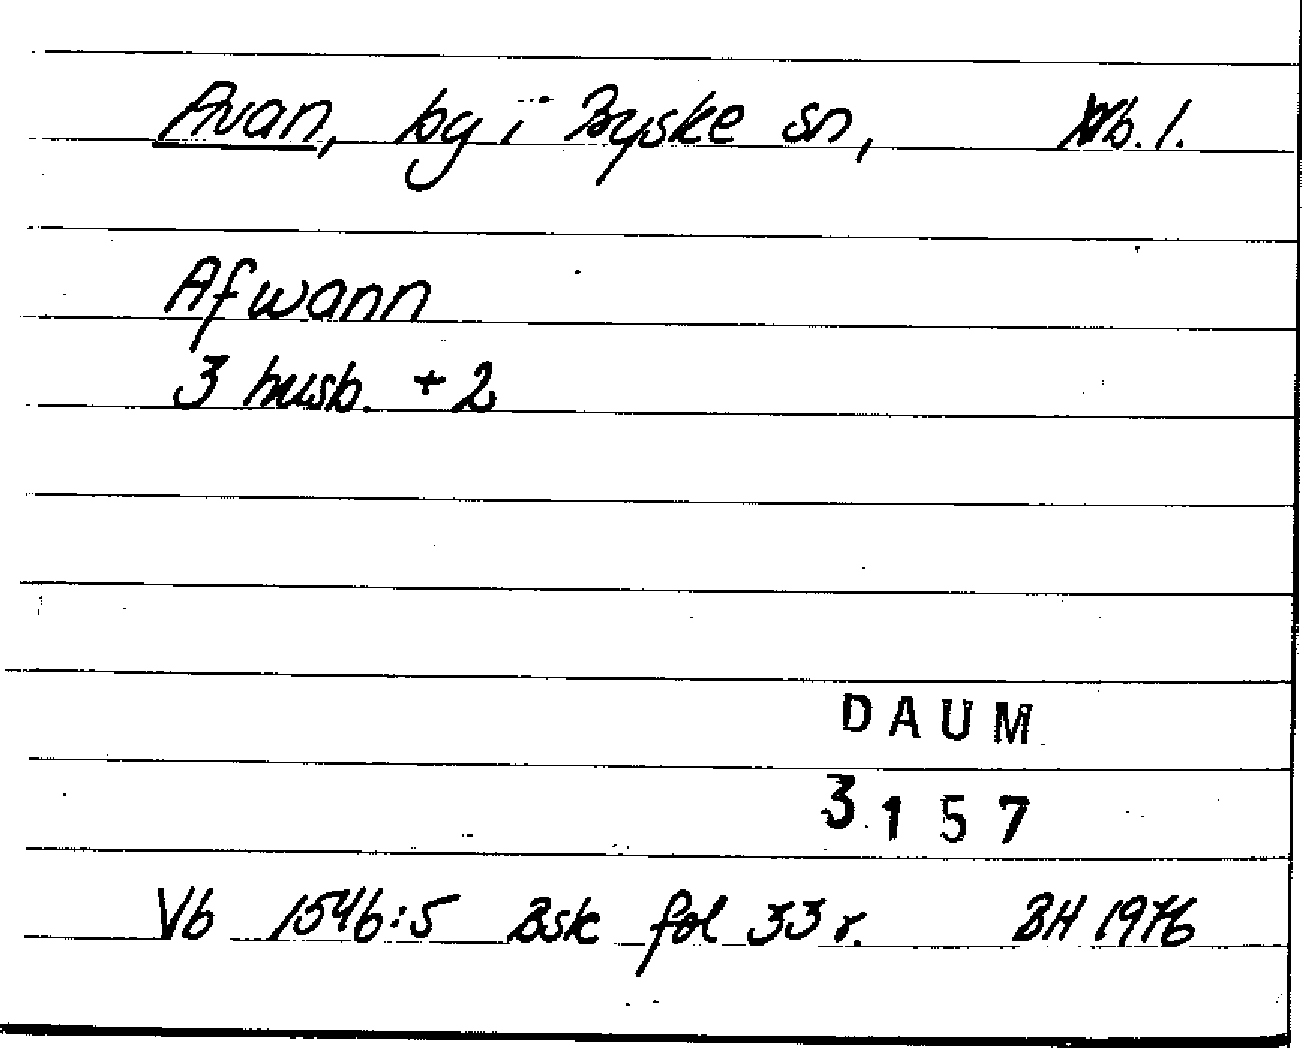 Avan, by i Byske sn, Vb. l.
Afwann
3 husb. + 2
DAUM
3157
Vb 1546:5 Bsk fol 33 r. BH 1976